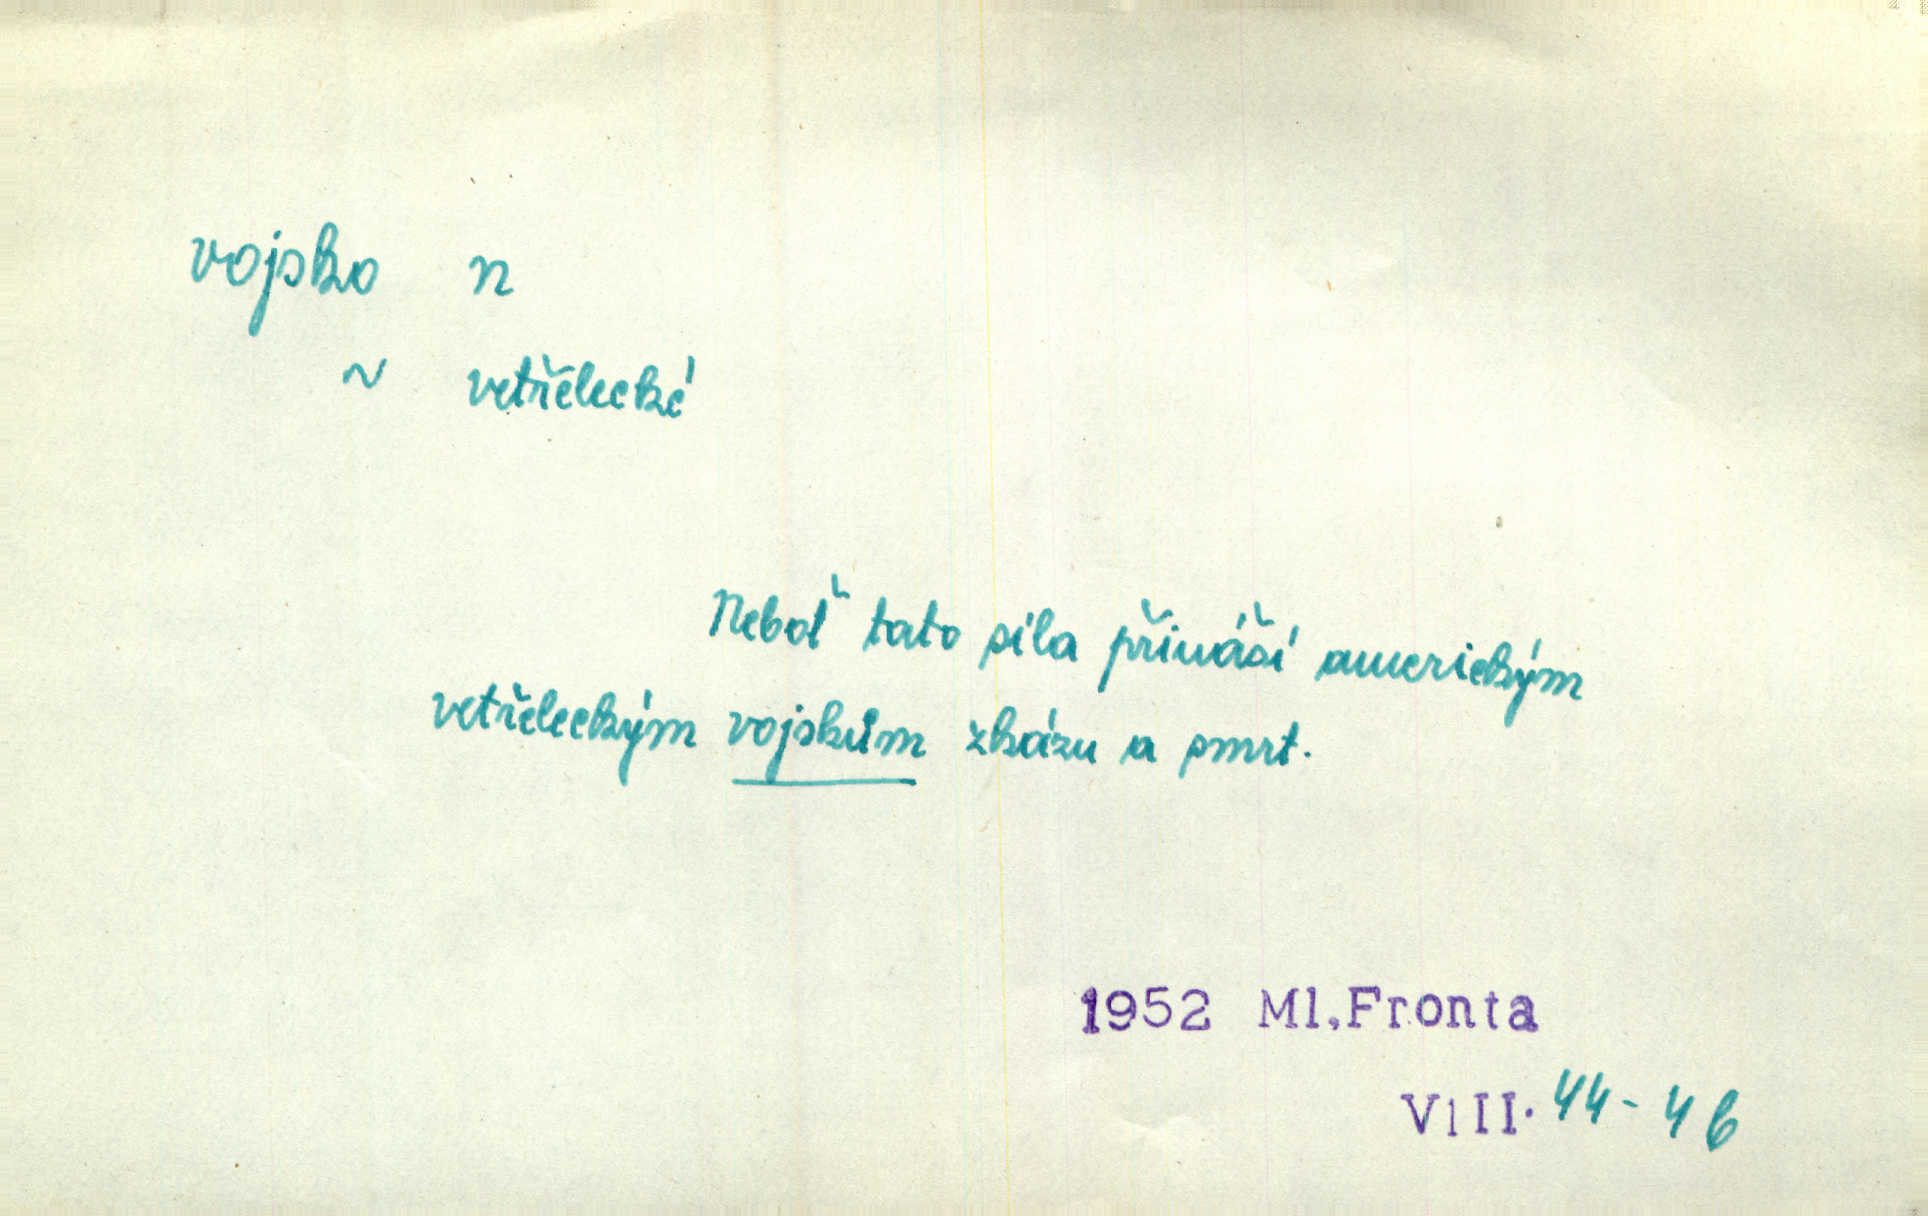 vojsko n
~ vetřelecké
Neboť tato síla přináší americkým
vetřeleckým vojskům zkázu a smrt.
1952 Ml.Fronta
VIII. 44-46